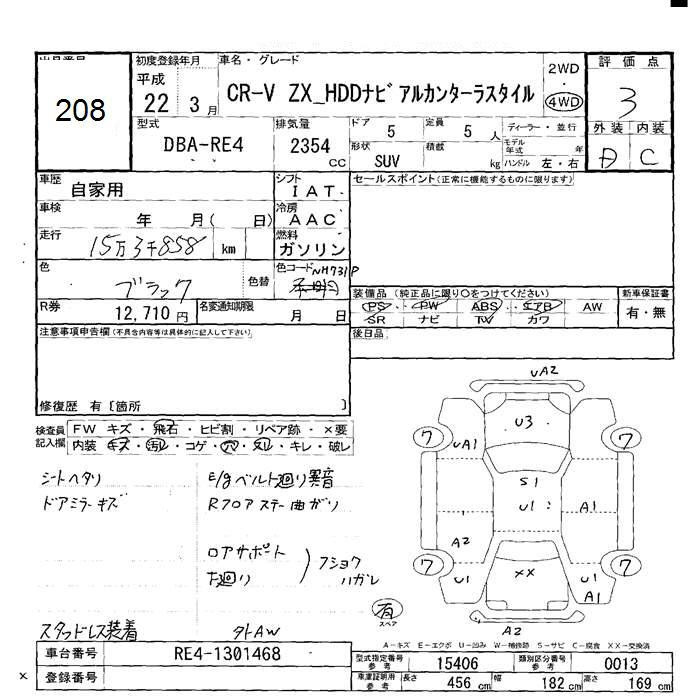 208
初度登録年月
平成
22 3月
車名・グレード
CR-V ZX_HDDナビアルカンターラスタイル
2WD
4WD
評価点
3
型式
DBA-RE4
排気量
2354
CC
ドア
5
定員
5 人
ディーラー・並行
モデル年式 年
形状
SUV
積載
kg
ハンドル 左・右
外装 内装
D C
車歴
自家用
シフト
IAT
セールスポイント(正常に機能するものに限ります)
車検
年 月( 日)
冷房
AAC
走行
15万3千858 km
燃料
ガソリン
色
ブラック
色替
色コード NH731P
R券
12,710 円
名変通知期限
月 日
装備品(純正品に限り○をつけてください)
PS PW ABS エアB AW
SR ナビ TV カワ
新車保証書
有・無
注意事項申告欄(不具合内容等は具体的に記入して下さい)
後日品
修復歴 有〔箇所 〕
検査員記入欄
FW キズ・飛石・ヒビ割・リペア跡・×要
内装 キズ・汚れ・コゲ・穴・スレ・キレ・破レ
シートヘタリ
ドアミラーキズ
E/gベルト廻り異音
Rフロアステー曲がり
ロアサポート
下廻り
フショク
ハガレ
スタッドレス装着
外AW
UA2
U3
7 7
UA1
S1
U1
A1
A2
7 7
U1
XX
U1
A1
有
スペア
A2
A-キズ E-エクボ U-凹み W-補修跡 S-サビ C-腐食 XX-交換済
車台番号
RE4-1301468
型式指定番号
参考
15406
類別区分番号
参考
0013
登録番号
車庫証明用
参考
長さ 456 cm
幅 182 cm
高さ 169 cm